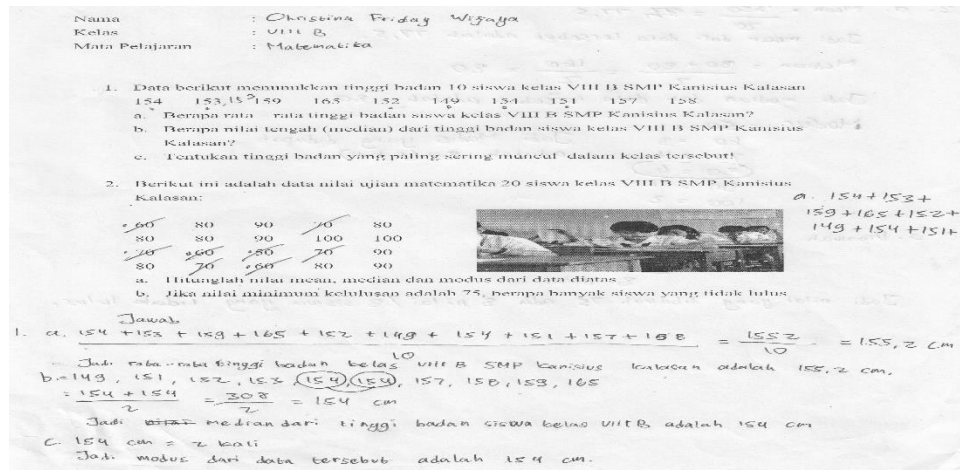 Nama : Christina Friday Wijaya
Kelas : VIII B
Mata Pelajaran : Matematika
1. Data berikut menunjukkan tinggi badan 10 siswa kelas VIII B SMP Kanisius Kalasan
154 153, 159 165 152 149 154 151 157 158
a. Berapa rata – rata tinggi badan siswa kelas VIII B SMP Kanisius Kalasan?
b. Berapa nilai tengah (median) dari tinggi badan siswa kelas VIII B SMP Kanisius
Kalasan?
c. Tentukan tinggi badan yang paling sering muncul dalam kelas tersebut!
2. Berikut ini adalah data nilai ujian matematika 20 siswa kelas VIII B SMP Kanisius
Kalasan:
60 80 90 70 80
80 80 90 100 100
70 60 50 70 90
80 70 60 80 90
a. 154 + 153 +
159 + 165 + 152 +
149 + 154 + 151 +
a. Hitunglah nilai mean, median dan modus dari data diatas
b. Jika nilai minimum kelulusan adalah 75, berapa banyak siswa yang tidak lulus
Jawab
1. a. 154 + 153 + 159 + 165 + 152 + 149 + 154 + 151 + 157 + 158 = 1552 = 155,2 cm
10 10
Jadi rata-rata tinggi badan kelas VIII B SMP Kanisius Kalasan adalah 155,2 cm.
b. = 149, 151, 152, 153, 154, 154, 157, 158, 159, 165
= 154 + 154 = 308 = 154 cm
2 2
Jadi median dari tinggi badan siswa kelas VIII B adalah 154 cm
c. 154 cm = 2 kali
Jadi modus dari data tersebut adalah 154 cm.